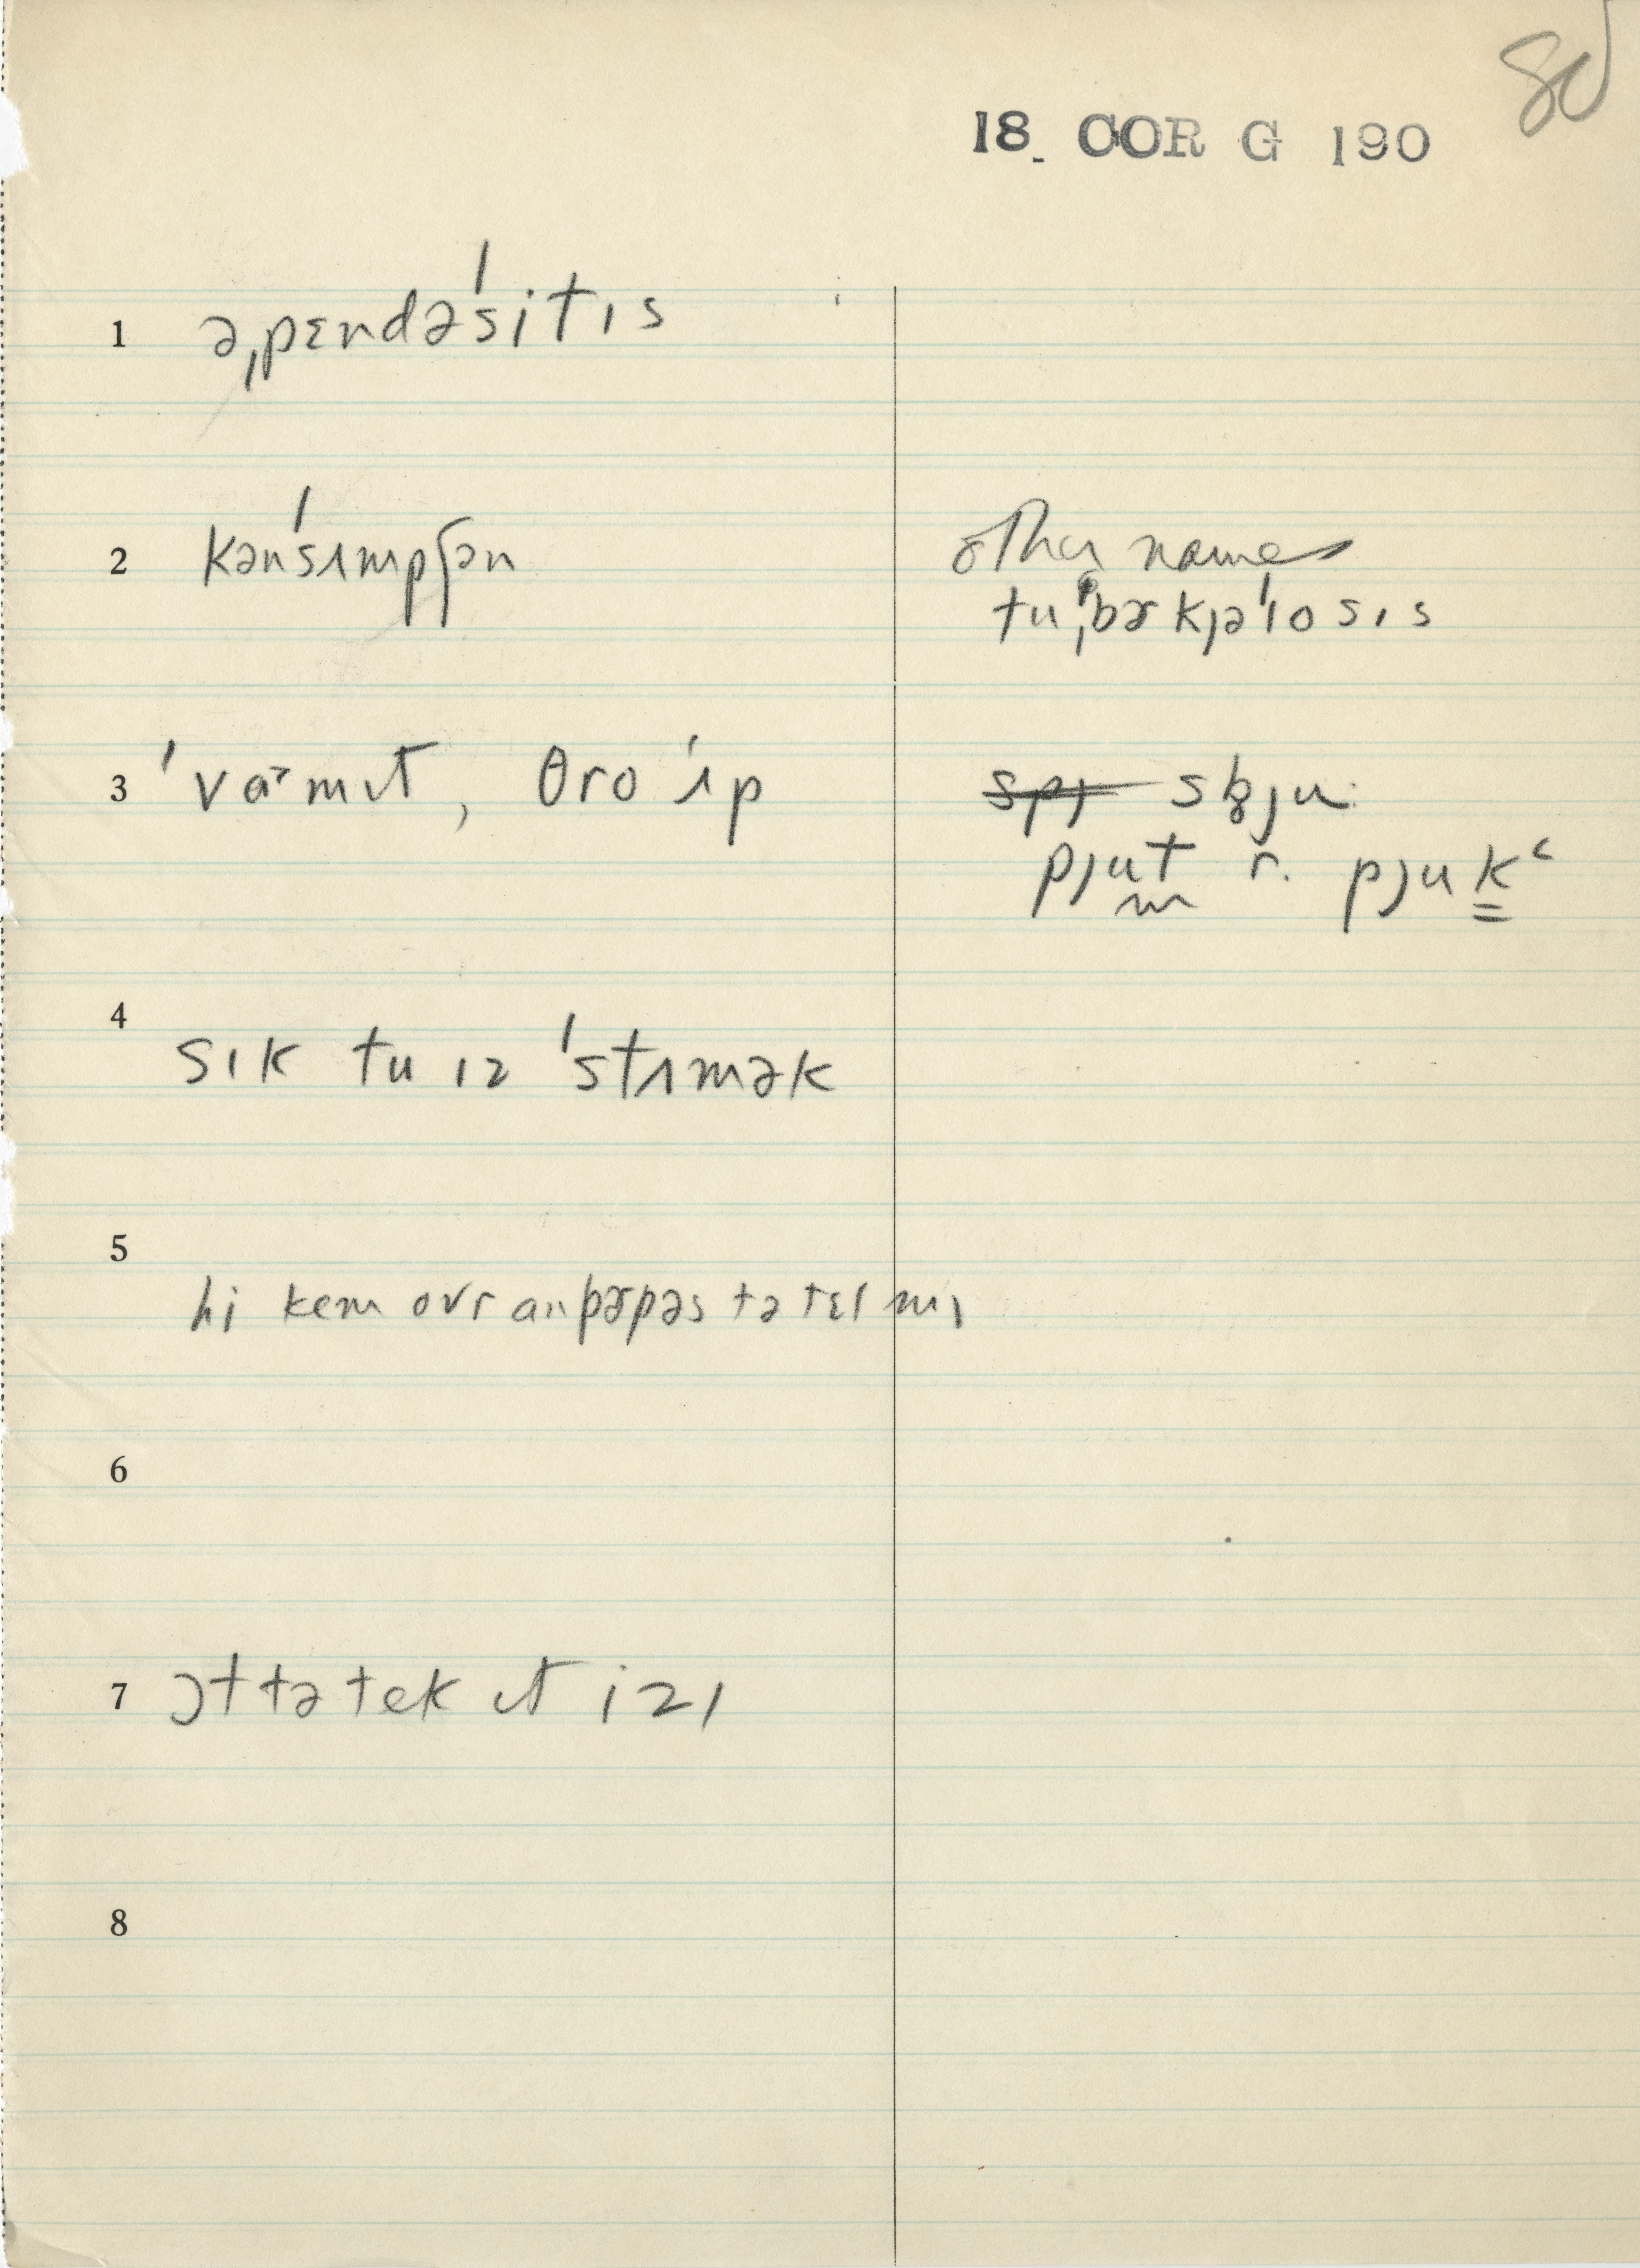 80
18. COR G 190
1 əˌpɛndəˈsitɪs
2 kənˈsʌmpʃən
other names
tuˌbɚkjəˈlosɪs
3 ˈvɑmɪt, θro ˈʌp
spj sb̥ju
pjut r. pjukʿ
4 sɪk tu ɪz ˈstʌmək
5 hi kem ovr anpɚpəs tə tɛl mɪ
6
7 ɔt tə tek ɪt izɪ
8